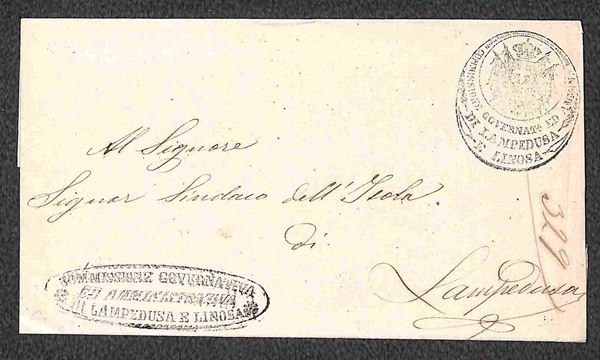 COMMISSIONE GOVERNAT.ª ED AMM
DI LAMPEDUSA
E LINOSA
Al Signore
Signor Sindaco dell'Isola
di
Lampedusa
329
COMMISSIONE GOVERNATIVA
ED AMMINISTRATIVA
DI LAMPEDUSA E LINOSA